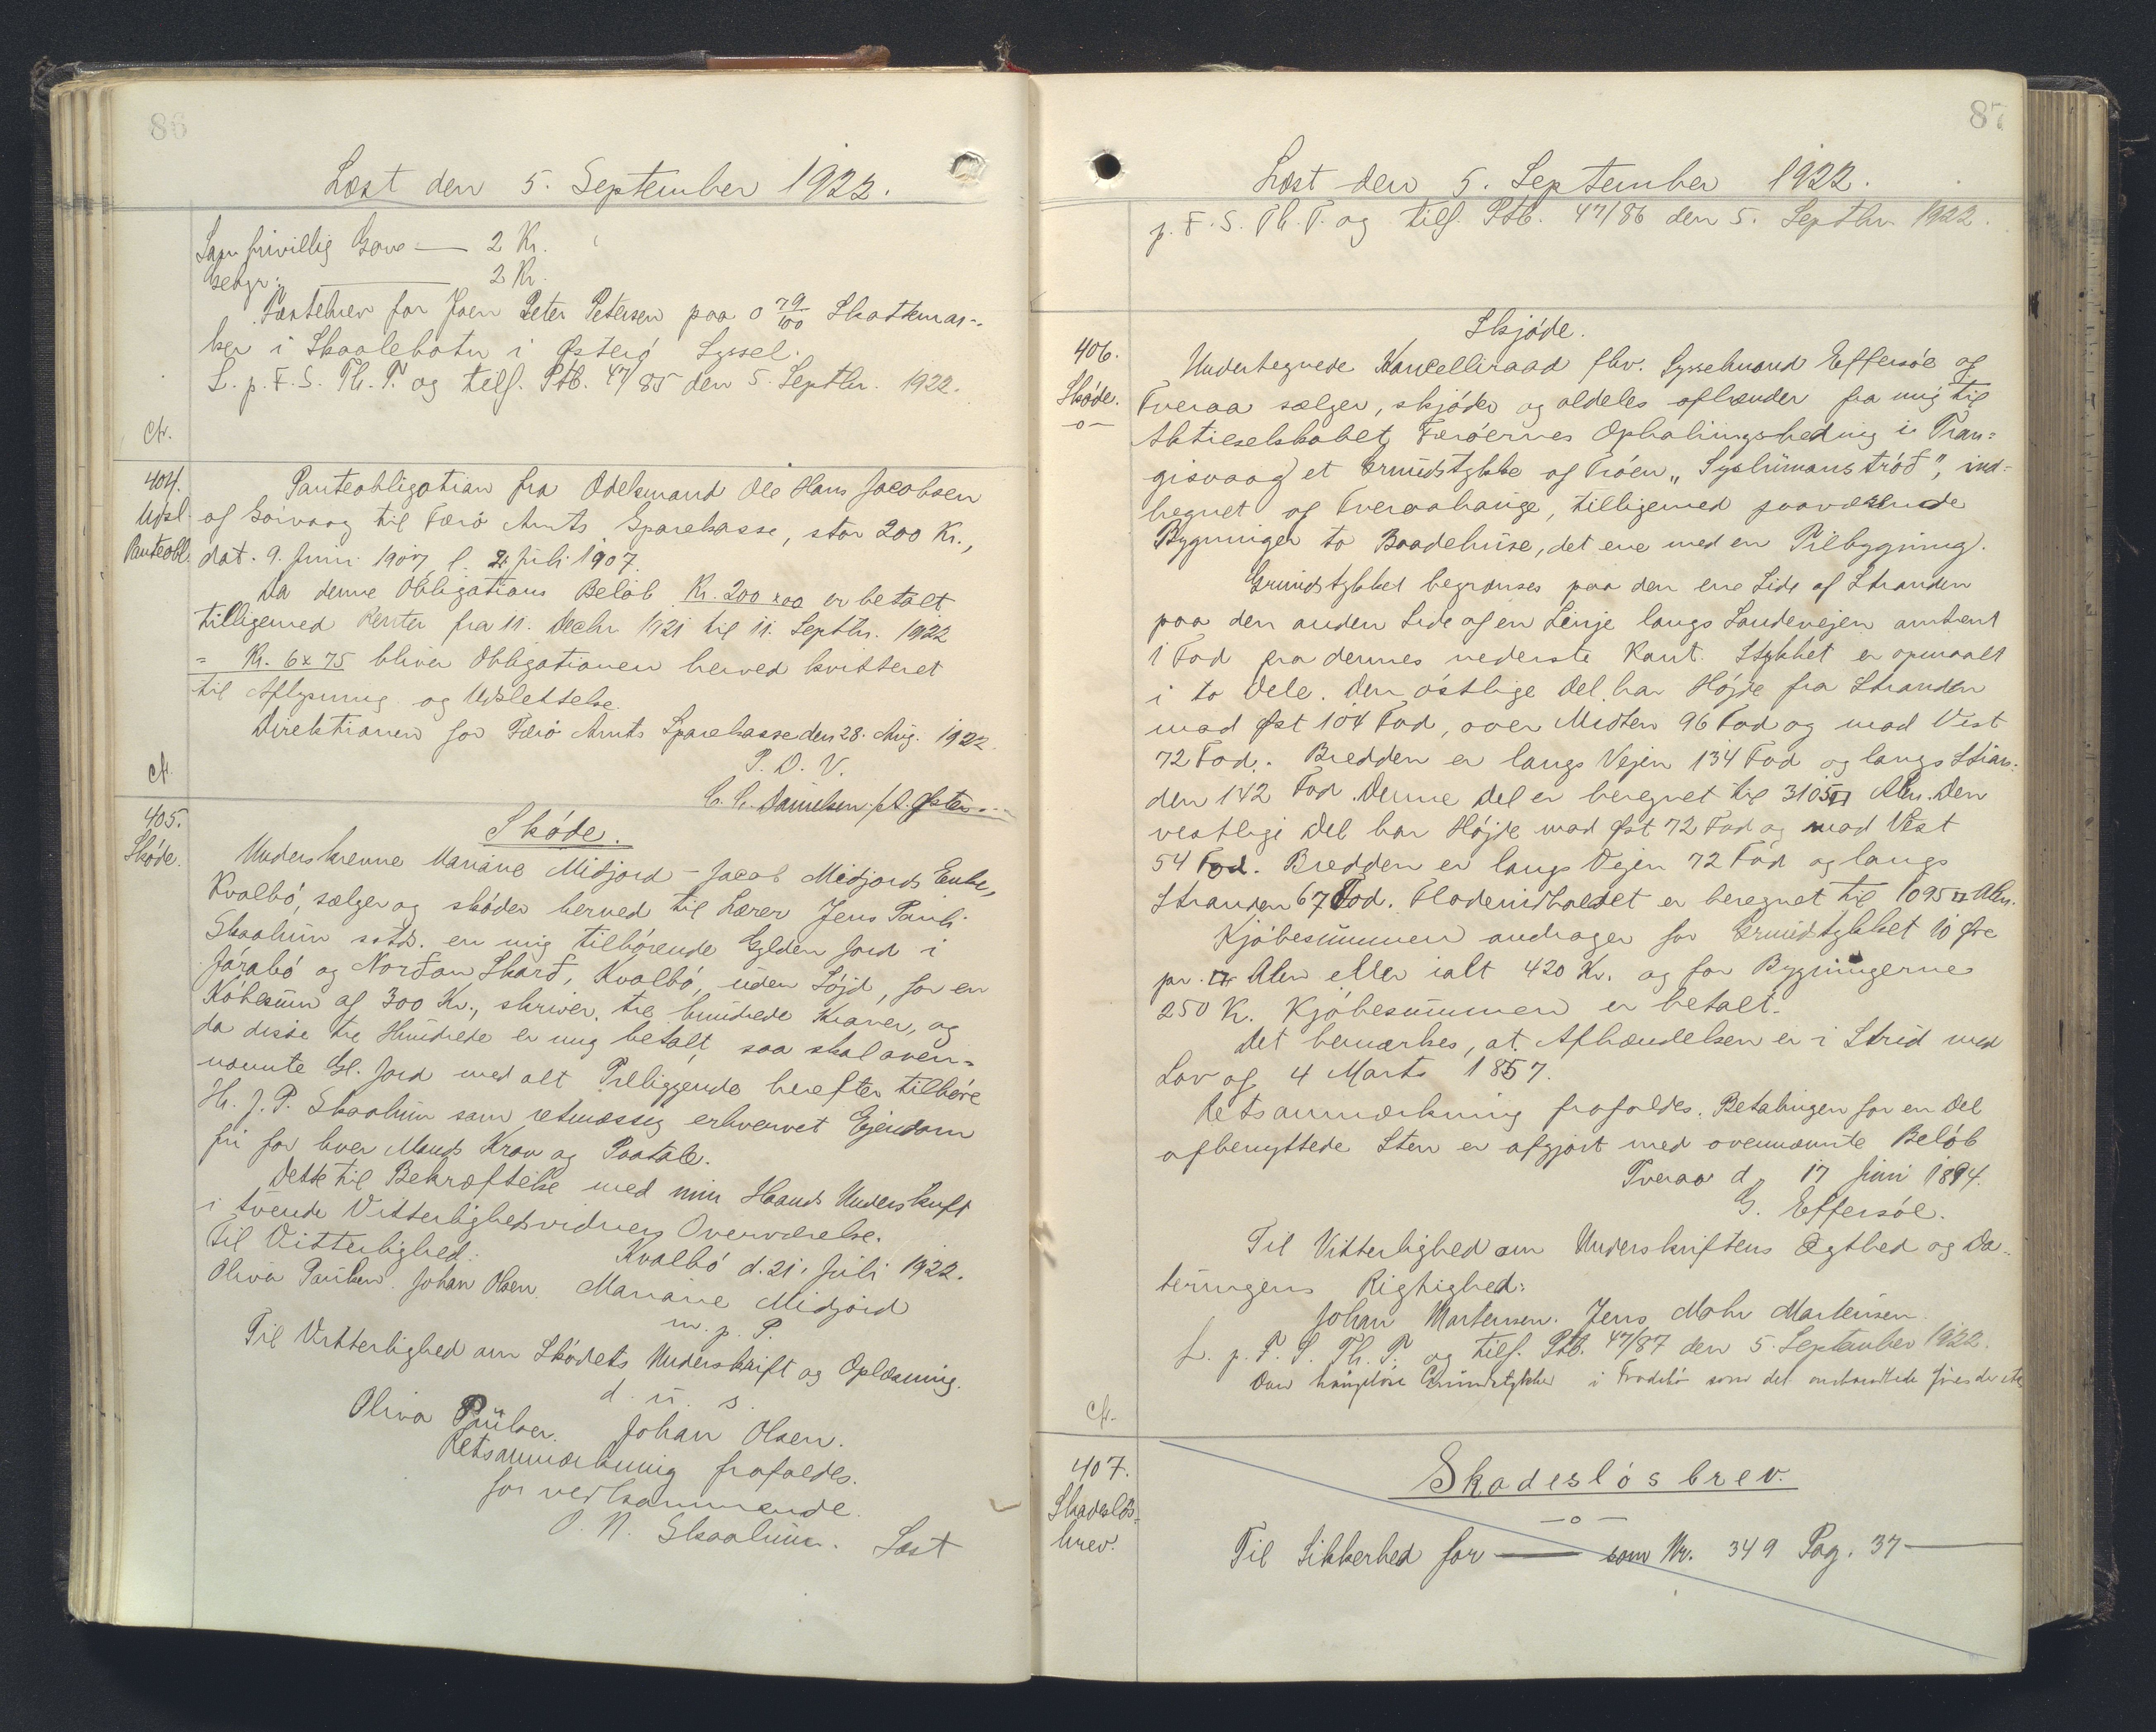 86
Læst den 5. September 1922.
Sagn frivillig Gave — 2 Kr.
Gebyr: — 2 Kr.
Fæstebrev for Joen Peter Petersen paa 0 79/100 Skattemar-
ker i Skaalebotn i Østerø Syssel.
L. p. F. S. Th. T. og tilf. Ptb. 47/85 den 5. Septbr. 1922.
404.
Udsl.
Panteobl.
Panteobligation fra Odelsmand Ole Hans Jacobsen
af Sørvaag til Færø Amts Sparekasse, stor 200 Kr.,
dat. 9. Juni 1907, l. 2. Juli 1907.
Da denne Obligations Beløb Kr. 200 x 00 er betalt
tilligemed Renter fra 11. Decbr. 1921 til 11. Septbr. 1922
= Kr. 6 x 75 bliver Obligationen herved kvitteret
til Aflysning og Udslettelse.
Direktionen for Færø Amts Sparekasse den 28. Aug. 1922.
P. D. V.
C. C. Danielsen. pt.
405.
Skøde.
Skøde.
Underskrevne Mariane Midjord - Jacob Midjords Enke,
Kvalbø, sælger og skøder herved til Lærer Jens Pauli
Skaalum sstds. en mig tilhørende Gylden Jord i
Járabø og Norðan Skarð, Kvalbø, uden Søjd, for en
Købesum af 300 Kr., skriver, tre hundrede Kroner, og
da disse tre Hundrede er mig betalt, saa skal oven-
nævnte Gl. Jord med alt Tilliggende herefter tilhøre
Hr. J. P. Skaalum som retmæssig erhvervet Ejendom
fri for hver Mands Krav og Paatale.
Dette til Bekræftelse med min Haands Underskrift
i tvende Vitterlighedsvidners Overværelse.
Til Vitterlighed:
Kvalbø d. 21. Juli 1922.
Oliva Paulsen. Johan Olsen. Mariane Midjord
m. p. P.
Til Vitterlighed om Skødets Underskrift og Oplæsning.
d. u. s.
Oliva Paulsen. Johan Olsen.
Retsanmærkning frafaldes.
for vedkommende.
O. N. Skaalum. Læst
87
Læst den 5. September 1922.
p. F. S. Th. T. og tilf. Ptb. 47/86 den 5. Septbr. 1922.
406.
Skøde.
-o-
Skjøde.
Undertegnede Kancelliraad fhv. Sysselmand Effersöe af
Tveraa sælger, skjøder og aldeles afhænder fra mig til
Aktieselskabet Færöernes Ophalingsbeding i Tran-
gisvaag et Grundstykke af Trøen "Syslumanstrøð", ind-
hegnet af Tveraahauge, tilligemed paaværende
Bygninger to Baadehuse, det ene med en Tilbygning.
Grundstykket begrænses paa den ene Side af Stranden
paa den anden Side af en Linje langs Landevejen omtrent
1 Fod fra dennes nederste Kant. Stykket er opmaalt
i to Dele. Den østlige Del har Højde fra Stranden
mod Øst 104 Fod, over Midten 96 Fod og mod Vest
72 Fod. Bredden er langs Vejen 134 Fod og langs Stran-
den 142 Fod. Denne Del er beregnet til 3105 □ Alen. Den
vestlige Del har Højde mod Øst 72 Fod og mod Vest
54 Fod. Bredden er langs Vejen 72 Fod og langs
Stranden 67 Fod. Fladeindholdet er beregnet til 1095 □ Alen.
Kjøbesummen andrager for Grundstykket 10 Øre
pr. □ Alen eller ialt 420 Kr. og for Bygningerne
250 K. Kjøbesummen er betalt.
Det bemærkes, at Afhændelsen er i Strid med
Lov af 4 Marts 1857.
Retsanmærkning frafaldes. Betalingen for en Del
afbenyttede Sten er afgjort med ovennævnte Beløb
Tveraa d. 17 Juni 1894.
G. Effersöe.
Til Vitterlighed om Underskriftens Ægthed og Da-
teringens Rigtighed:
Johan Mortensen. Jens Mohr Mortensen
L. p. F. S. Th. T. og tilf. Ptb. 47/87 den 5. September 1922.
407.
Skadesløs-
brev.
Skadesløsbrev.
-o-
Til Sikkerhed for — som Nr. 349 Pag. 37 —